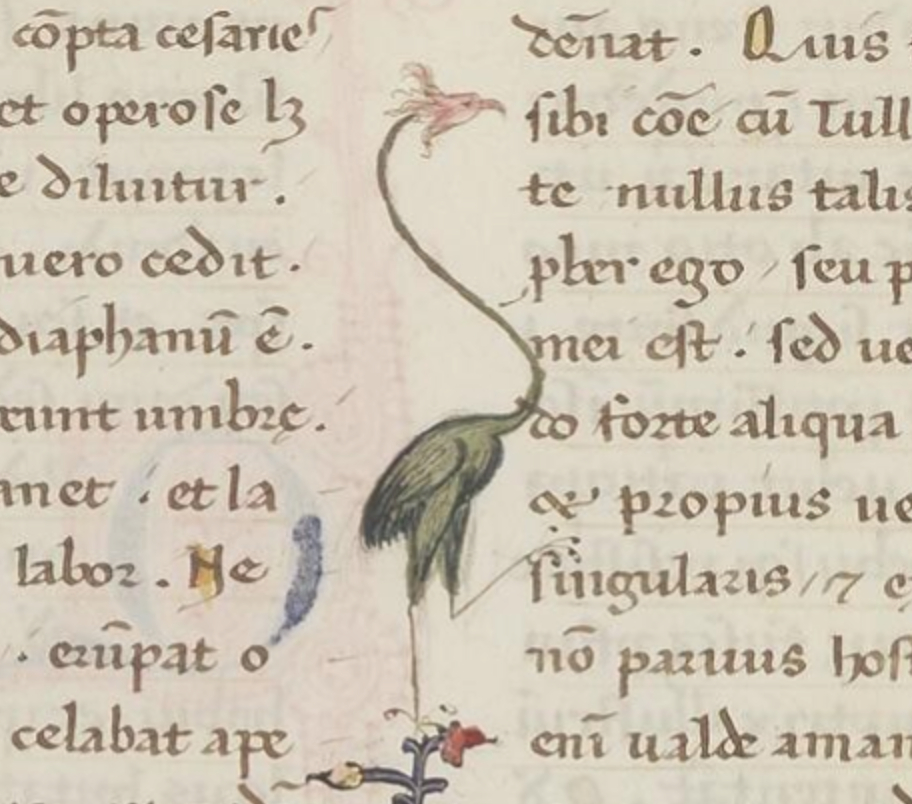 cōpta cesarieſ
et operose lꝫ
e diluitur.
uero cedit.
diaphanū ē.
erunt umbrę.
anet . et la
labor. Ne
. erūpat o
celabat ape
dēnat. Quis
sibi cōe cū Tull
te nullus talis
pber ego / seu p
mei est . sed ue
do forte aliqua
& propius ue
singularis / ⁊ e
nō paruus hos
enī ualde aman